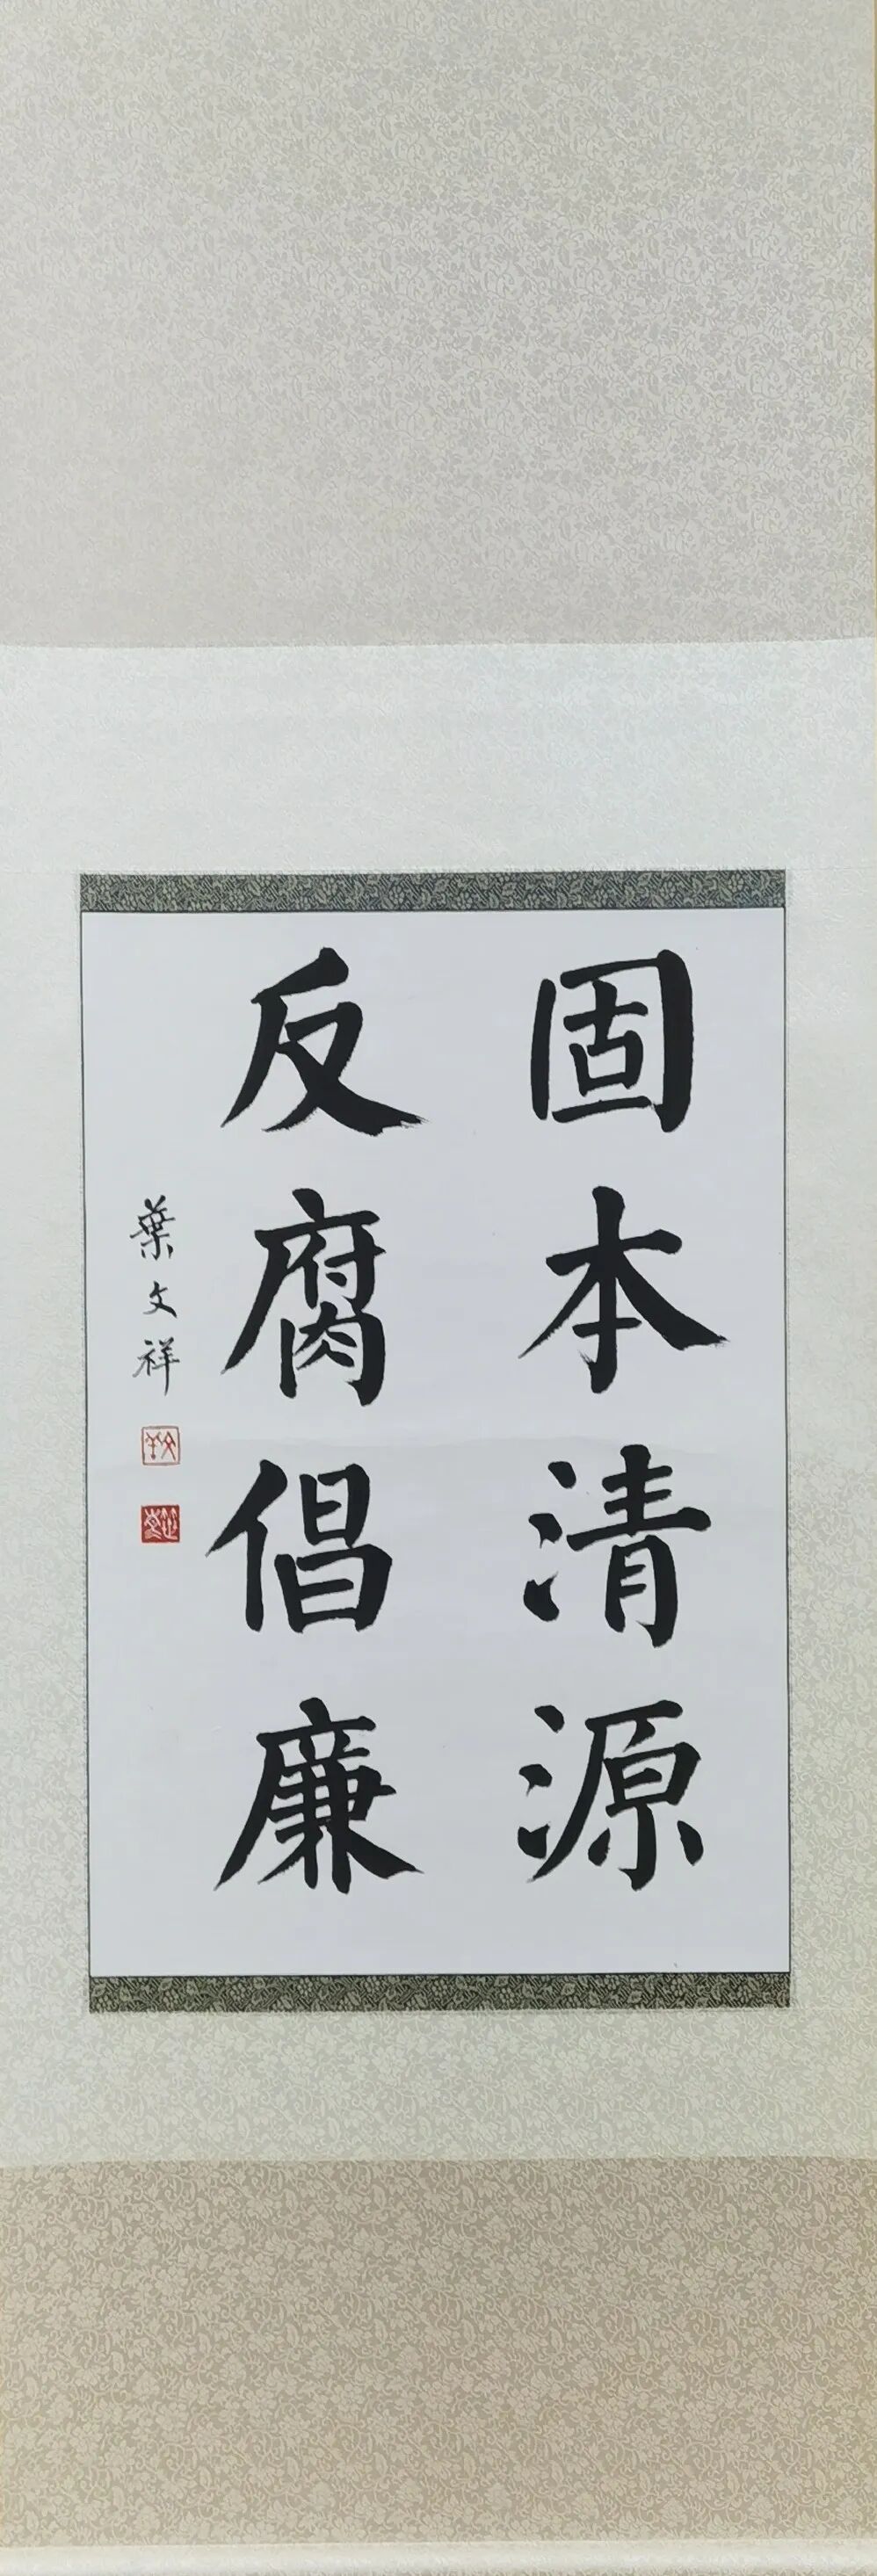 固本清源
反腐倡廉
葉文祥